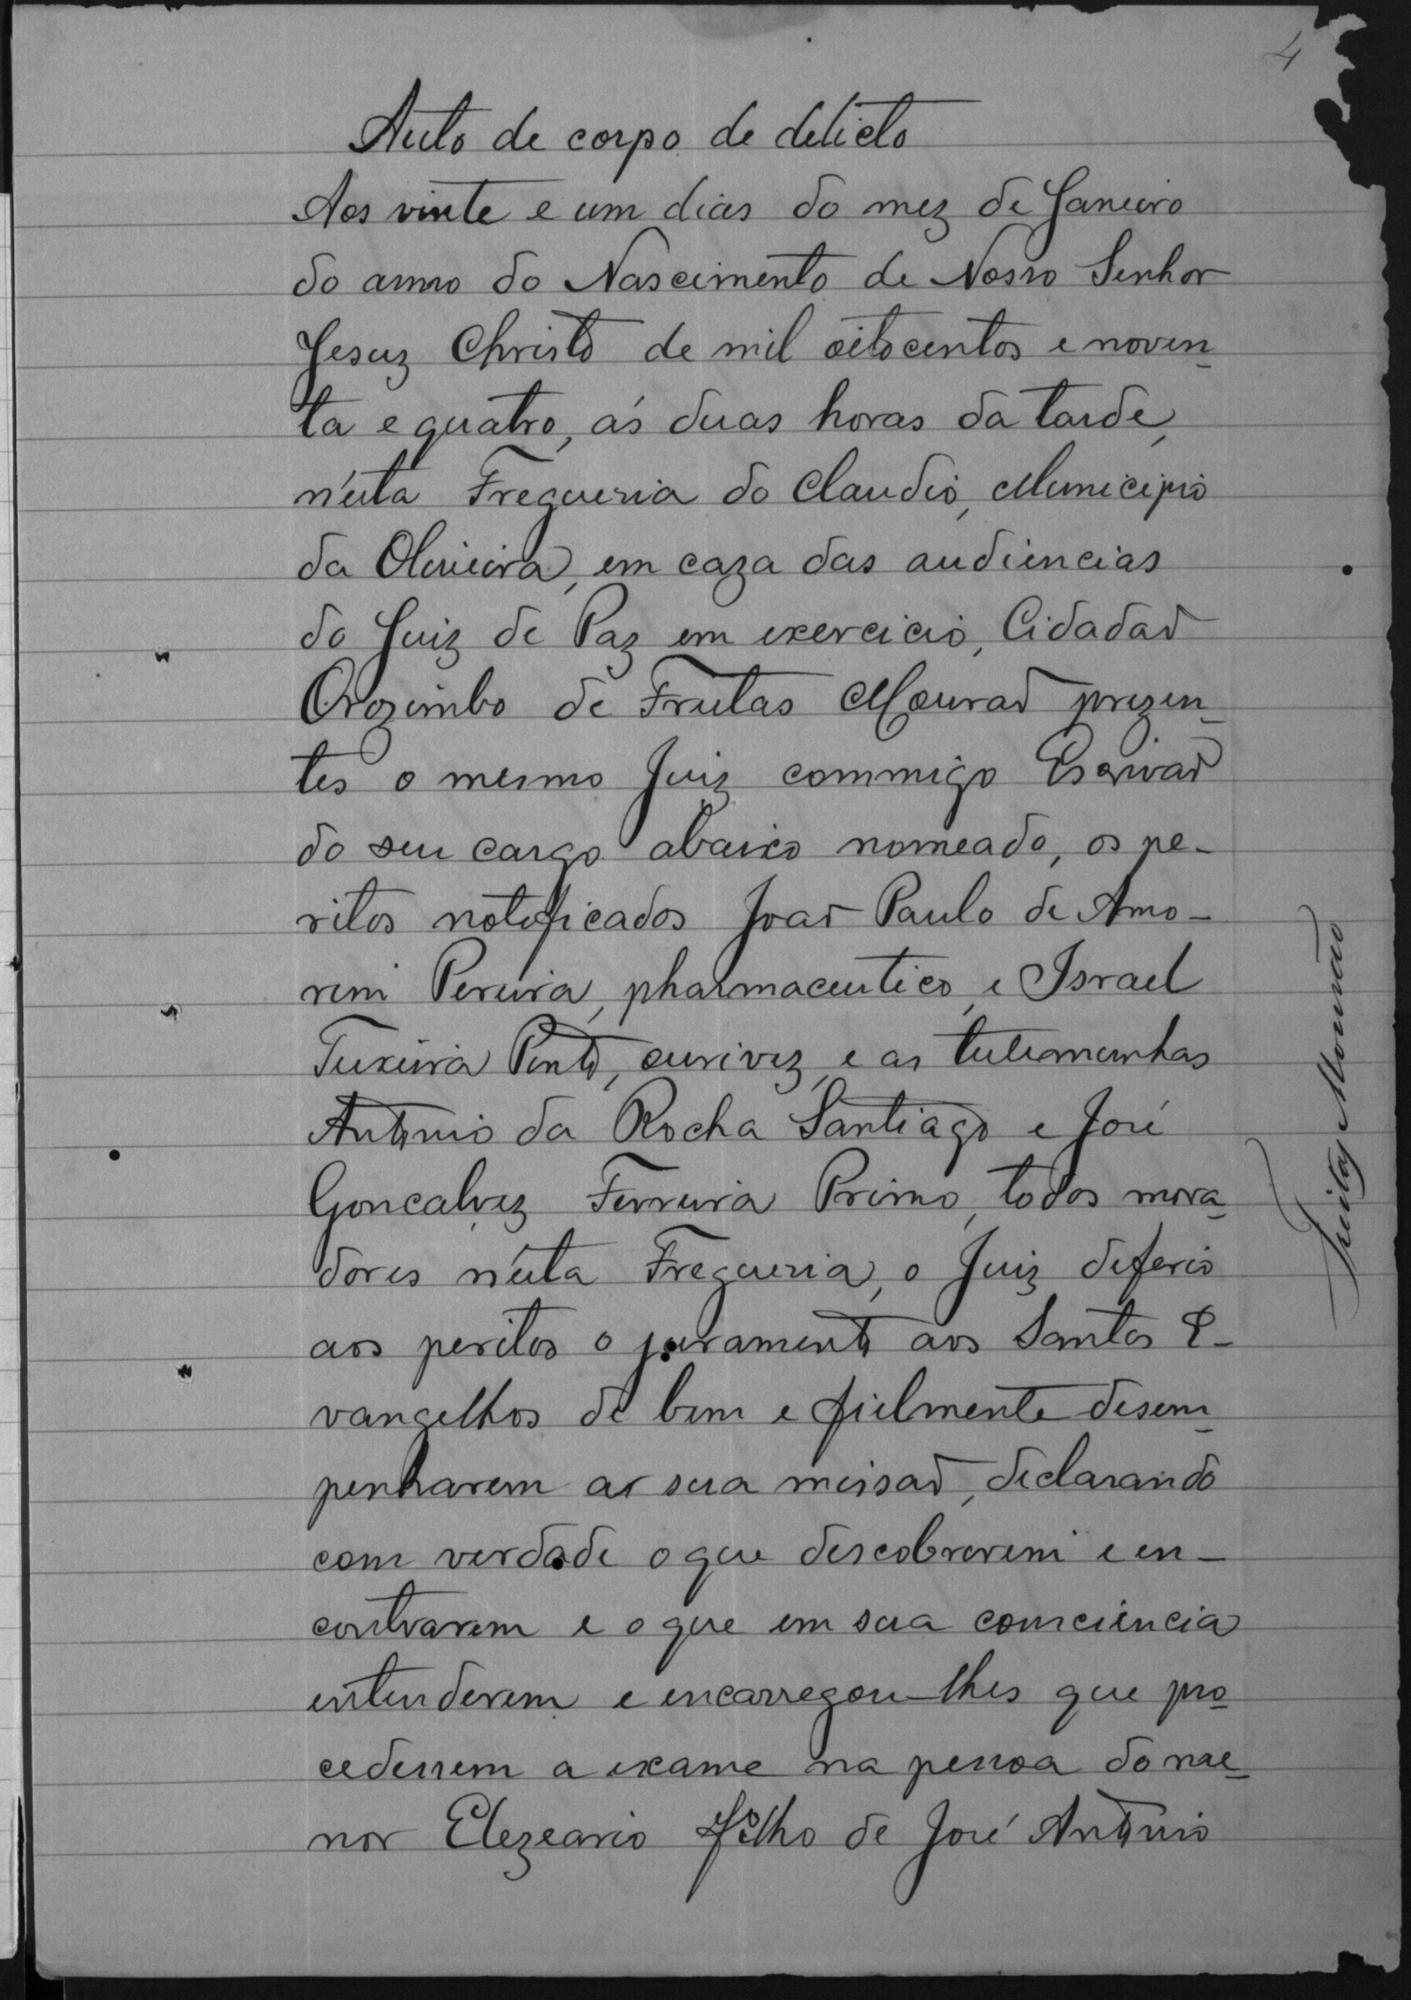 4
Auto de corpo de delicto
Aos vinte e um dias do mez de Janeiro
do anno do Nascimento de Nosso Senhor
Jesuz Christo de mil oitocentos e noven-
ta e quatro, ás duas horas da tarde,
n'esta Freguesia do Claudio, Municipio
da Oliveira, em caza das audiencias
do Juiz de Paz em exercicio, Cidadaõ
Orozimbo de Freitas Mouraõ prezen-
tes o mesmo Juiz commigo Escrivaõ
do seu cargo abaixo nomeado, os pe-
ritos notificados Joaõ Paulo de Amo-
rim Pereira, pharmaceutico, e Israel
Teixeira Pinto, ourivez, e as testemunhas
Antonio da Rocha Santiago e José
Goncalvez Ferreira Primo, todos mora-
dores n'esta Freguesia, o Juiz deferio
aos peritos o juramento aos Santos E-
vangelhos de bem e fielmente desem-
penharem as sua missaõ, declarando
com verdade o que descobrirem e en-
contrarem e o que em sua consciencia
entenderem e encarregou-lhes que pro-
cedessem a exame na pessoa do me-
nor Elezeario filho de José Antonio
Freitas Mourão